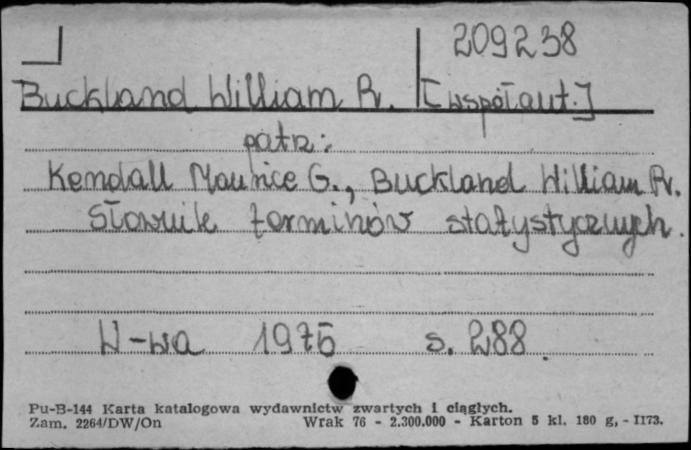 209238
Buckland William R. [współaut.]
patrz:
Kendall Maurice G., Buckland William R.
Słownik terminów statystycznych.
W-wa 1975 s. 288.
Pu-B-144 Karta katalogowa wydawnictw zwartych i ciągłych.
Zam. 2264/DW/On Wrak 76 - 2.300.000 - Karton 5 kl. 180 g, - I173.